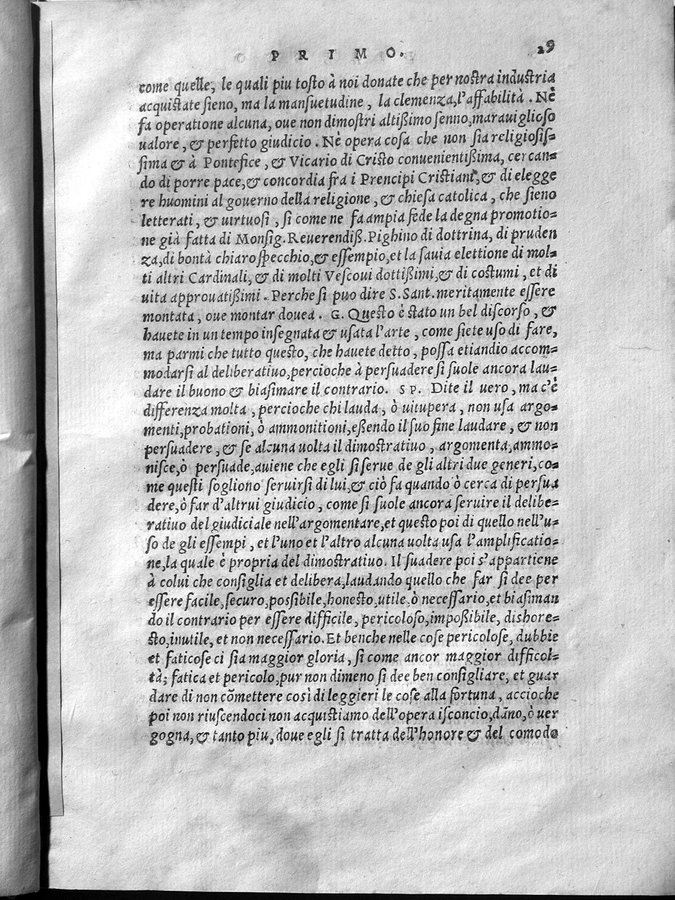 PRIMO. 29
come quelle, le quali piu tosto à noi donate che per nostra industria
acquistate sieno, ma la mansuetudine, la clemenza, l'affabilità. Nè
fa operatione alcuna, oue non dimostri altißimo senno, marauiglioso
ualore, & perfetto giudicio. Nè opera cosa che non sia religiosis-
sima & à Pontefice, & Vicario di Cristo conuenientißima, cercan-
do di porre pace, & concordia fra i Prencipi Cristiani, & di elegge
re huomini al gouerno della religione, & chiesa catolica, che sieno
letterati, & uirtuosi, si come ne fa ampia fede la degna promotio-
ne già fatta di Monsig. Reuerendiß. Pighino di dottrina, di pruden
za, di bontà chiaro specchio, & essempio, et la sauia elettione di mol-
ti altri Cardinali, & di molti Vescoui dottißimi, & di costumi, et di
uita approuatißimi. Perche si puo dire S. Sant. meritamente essere
montata, oue montar douea. G. Questo è stato un bel discorso, &
hauete in un tempo insegnata & usata l'arte, come siete uso di fare,
ma parmi che tutto questo, che hauete detto, possa etiandio accom-
modarsi al deliberatiuo, percioche à persuadere si suole ancora lau-
dare il buono & biasimare il contrario. SP. Dite il uero, ma c'è
differenza molta, percioche chi lauda, ò uitupera, non usa argo-
menti, probationi, ò ammonitioni, eßendo il suo fine laudare, & non
persuadere, & se alcuna uolta il dimostratiuo, argomenta, ammo-
nisce, ò persuade, auiene che egli si serue de gli altri due generi, co-
me questi sogliono seruirsi di lui, & ciò fa quando ò cerca di persua
dere, ò far d'altrui giudicio, come si suole ancora seruire il delibe-
ratiuo del giudiciale nell'argomentare, et questo poi di quello nell'u-
so de gli essempi, et l'uno et l'altro alcuna uolta usa l'amplificatio-
ne, la quale è propria del dimostratiuo. Il suadere poi s'appartiene
à colui che consiglia et delibera, laudando quello che far si dee per
essere facile, securo, possibile, honesto, utile, ò necessario, et biasiman
do il contrario per essere difficile, pericoloso, impoßibile, dishone-
sto, inutile, et non necessario. Et benche nelle cose pericolose, dubbie
et faticose ci sia maggior gloria, si come ancor maggior difficol-
tà; fatica et pericolo, pur non dimeno si dee ben consigliare, et guar
dare di non cõmettere così di leggieri le cose alla fortuna, accioche
poi non riuscendoci non acquistiamo dell'opera isconcio, dãno, ò uer
gogna, & tanto piu, doue egli si tratta dell'honore & del comodo